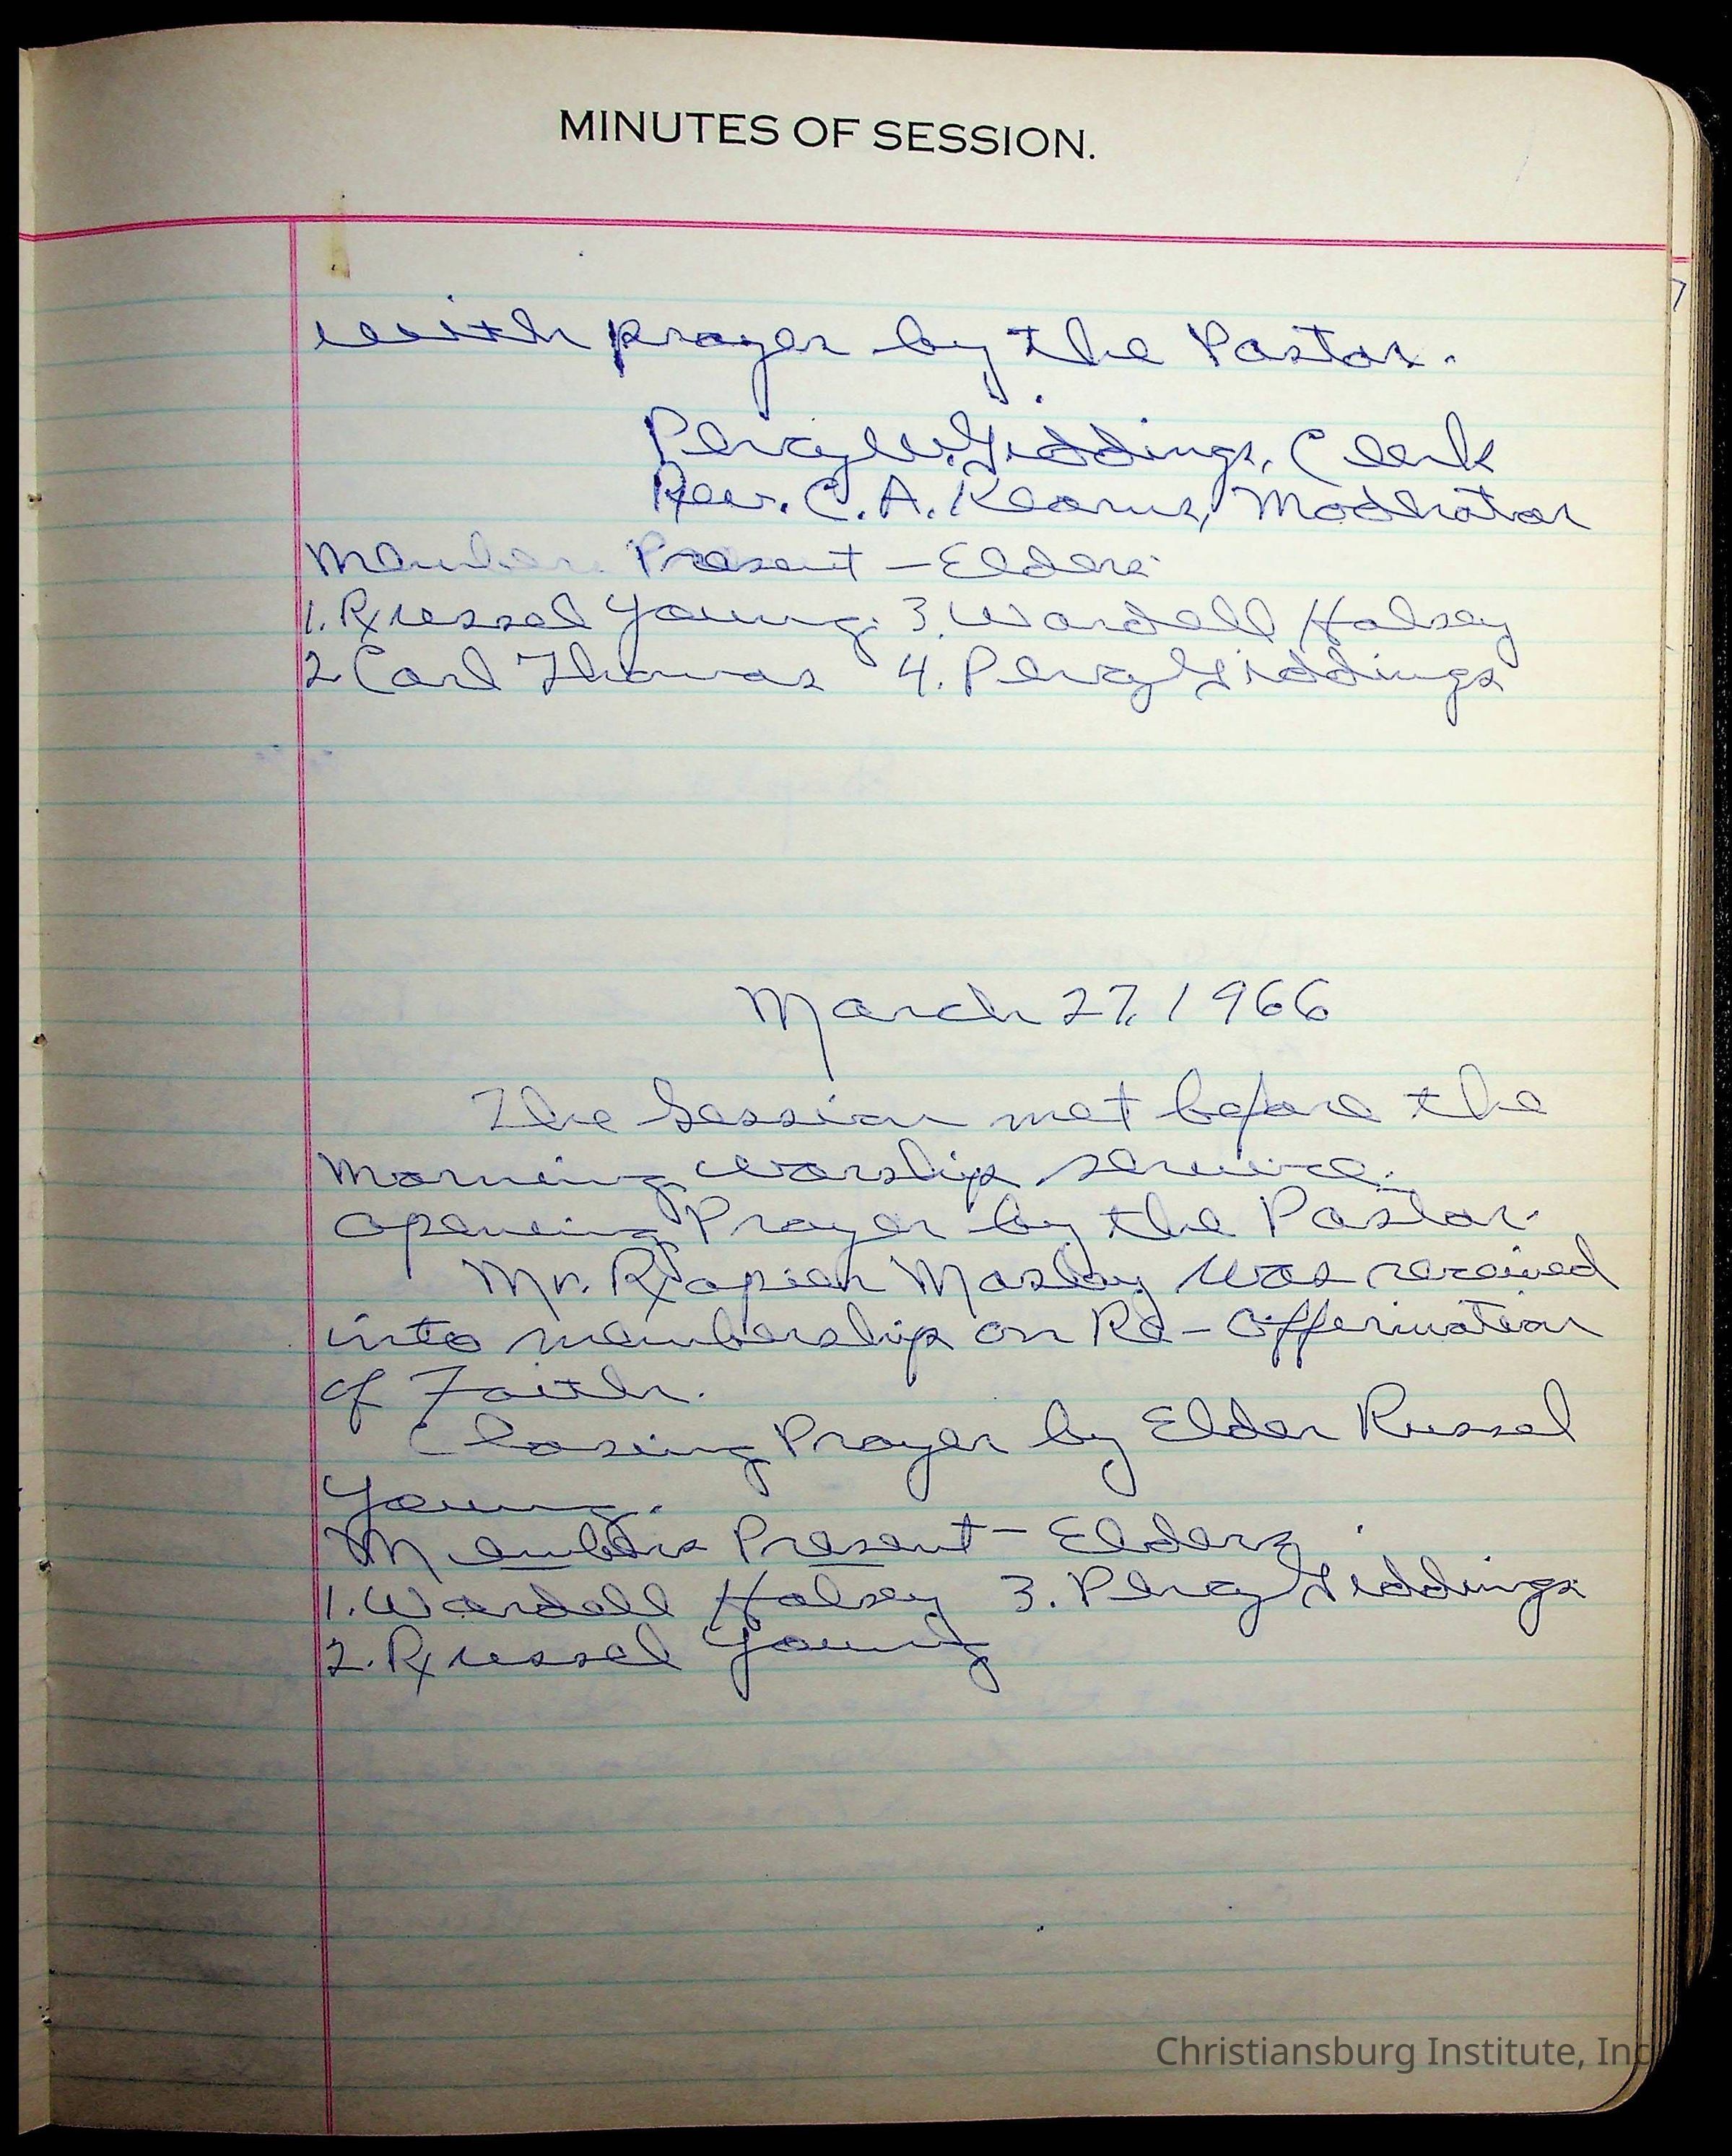 MINUTES OF SESSION.
with prayer by the Pastor.
Percy W. Giddings, Clerk
Rev. C. A. Kearns, Modhator
Member Present - Elders
1. Russel Young. 3. Wardell Halsey
2 Carl Thomas 4. Percy Giddings
March 27, 1966
The Session met before the
morning worship service.
opening Prayer by the Pastor.
Mr. Rapien Mosby was received
into membership on Re-Offermation
of Faith.
Closing Prayer by Elder Russel
Young.
Members Present - Elders
1. Wardell Halsey 3. Percy Giddings
2. Russel Young
Christiansburg Institute, Inc